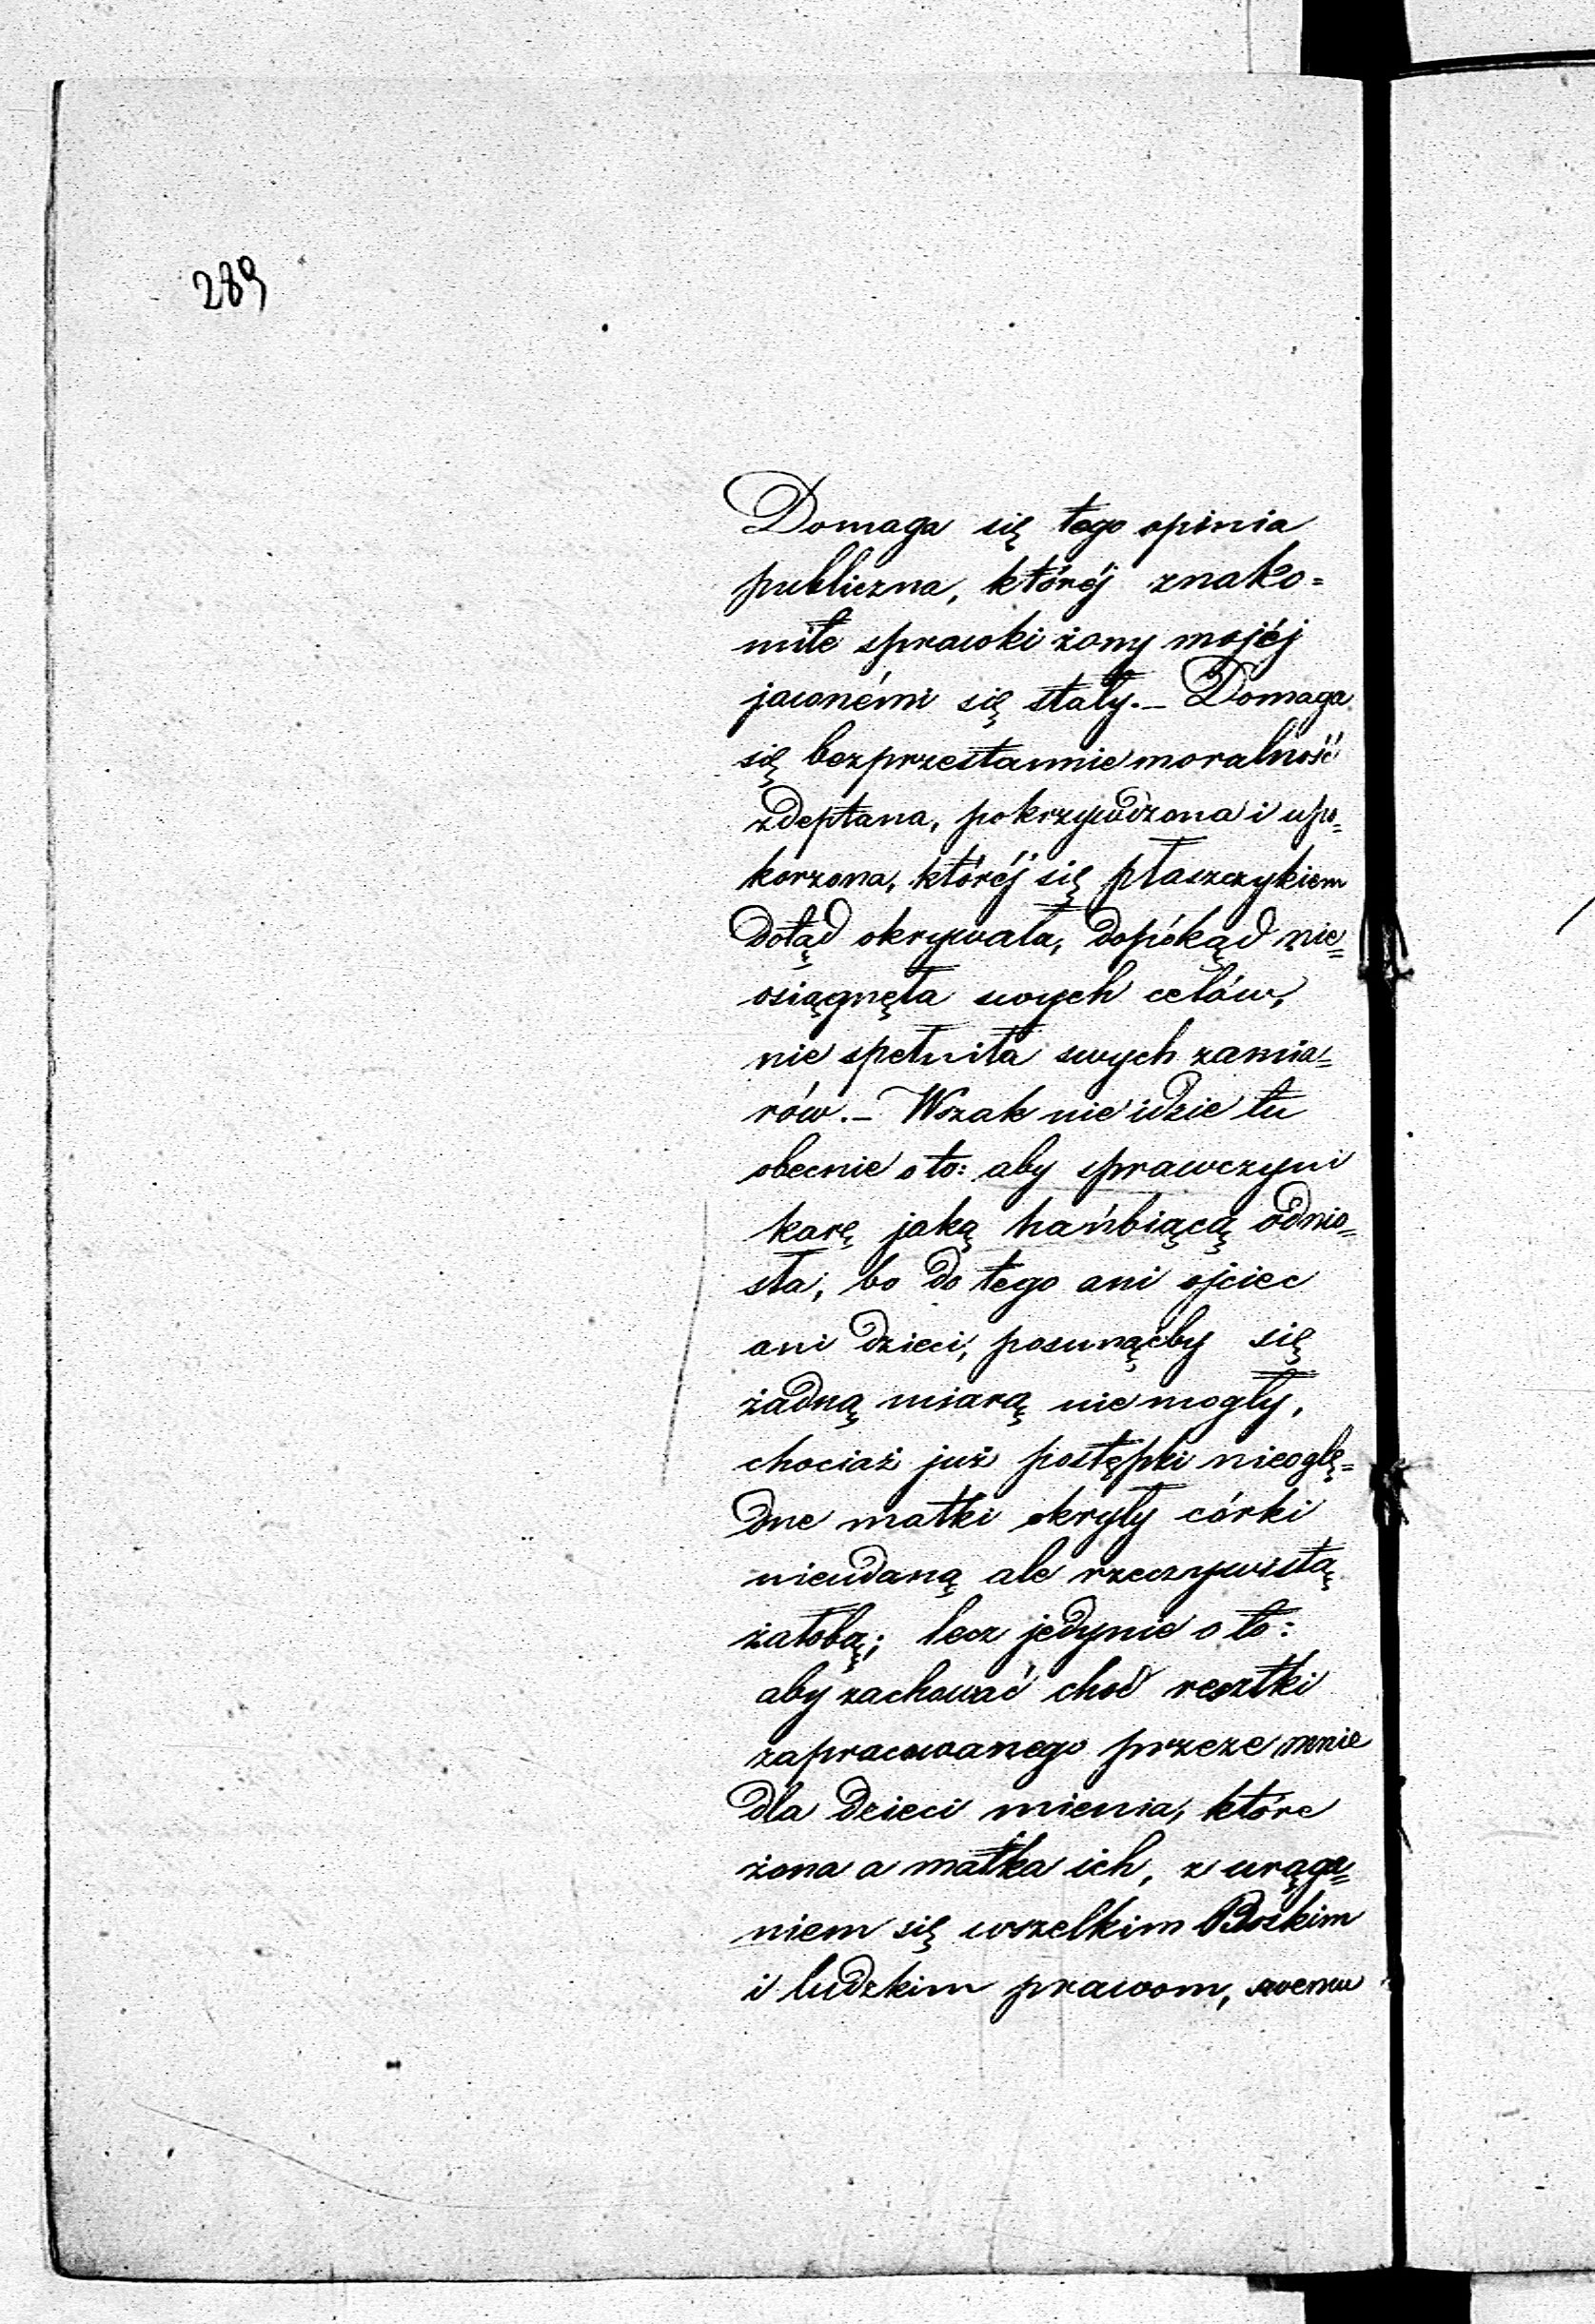 289
Domaga się tego opinia
publiczna, któréj znako=
mite sprawki żony mojéj
jawnémi się stały.— Domaga
się bezprzestannie moralność
zdeptana, pokrzywdzona i upo=
korzona, któréj się płaszczykiem
dotąd okrywała, dopókąd nie=
osiągnęła swych celów,
nie spełniła swych zamia=
rów.— Wszak nie idzie tu
obecnie o to: aby sprawczyni
karę jaką hańbiącą odnio=
sła, bo do tego ani ojciec
ani dzieci, posunąćby się
żadną miarą nie mogły,
chociaż już postępki nieoglę=
dne matki okryły córki
nieudaną ale rzeczywistą
żałobą; lecz jedynie o to:
aby zachować choć resztki
zapracowanego przeze mnie
dla dzieci mienia, które
żona a matka ich, z urąga=
niem się wszelkim Boskim
i ludzkim prawom, swemu